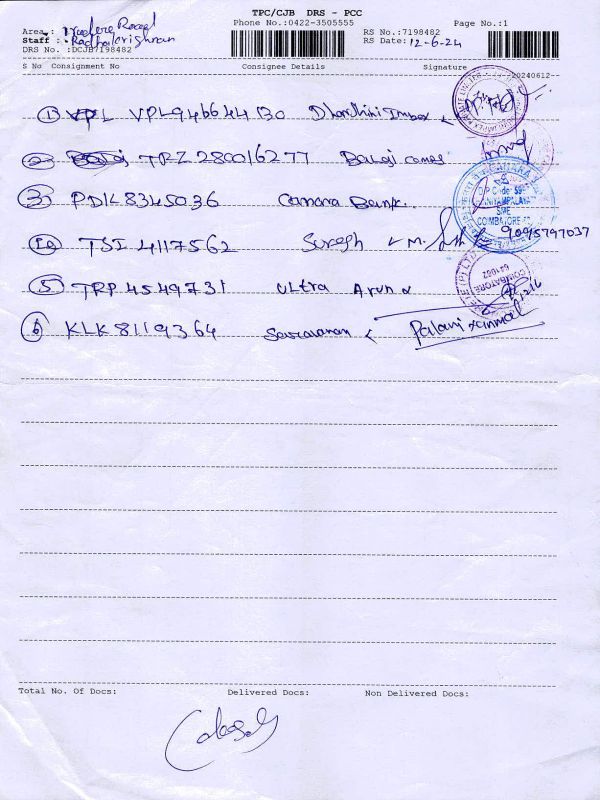 TPC/CJB DRS - PCC
Phone No.:0422-3505555 Page No.:1
Area : Road
Staff : Radhakrishnan
DRS No. :DCJB7198482
RS No.:7198482
RS Date: 12-6-24
S No Consignment No Consignee Details Signature
20240612-
1 VPL VPL946644130 Dharshini Impex
2 TRZ 280016277 Balaji
3 PDK8345036 Canara Bank.
4 TSI 4117562 Suresh M. 9095797037
5 TRP 4549731 Ultra Arun
COIMBATORE 641062
6 KLK 8119364 Saravanan Palaniammal
Total No. Of Docs: Delivered Docs: Non Delivered Docs: